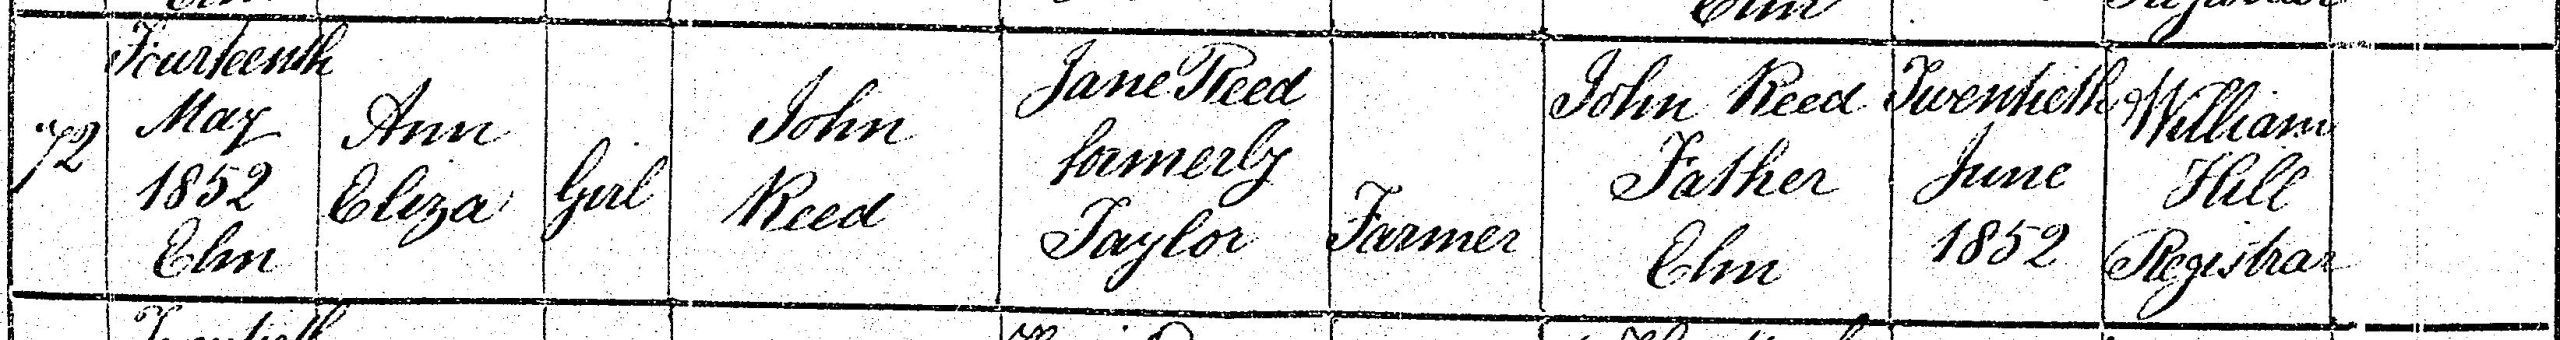 72
Fourteenth
May
1852
Elm
Ann
Eliza
Girl
John
Reed
Jane Reed
formerly
Taylor
Farmer
John Reed
Father
Elm
Twentieth
June
1852
William
Hill
Registrar